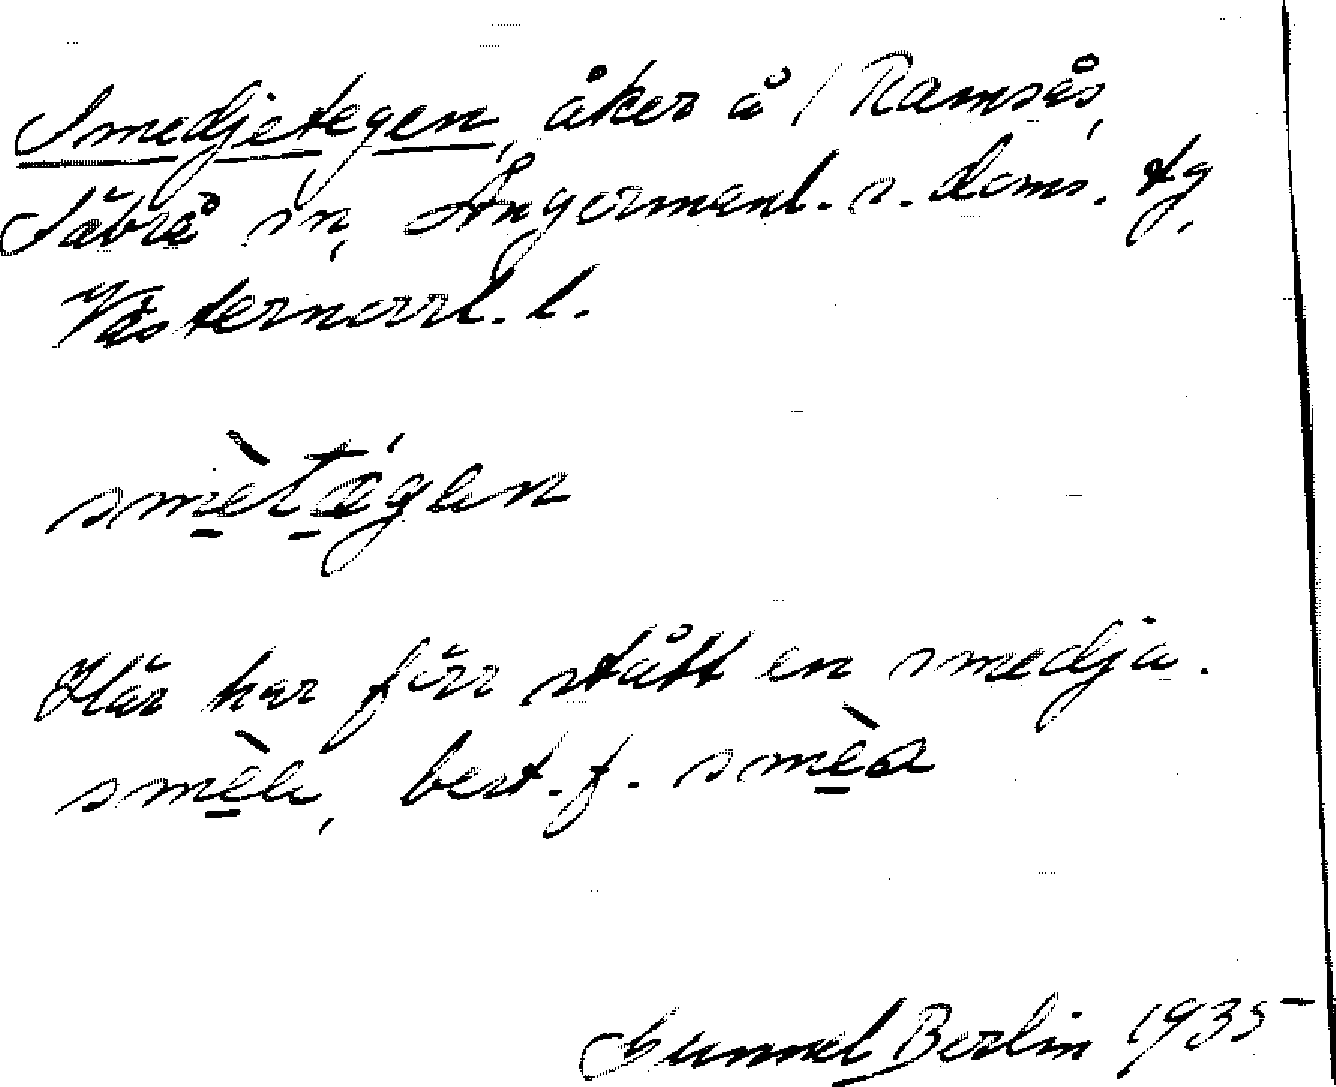 Smedjetegen, åker å / Ramsås,
Säbrå sn, Ångermanl. s. doms. tg,
Västernorrl. l.
smètégen
Här har förr stått en smedja.
smèe, best. f. smèa
Gunnel Berlin 1935